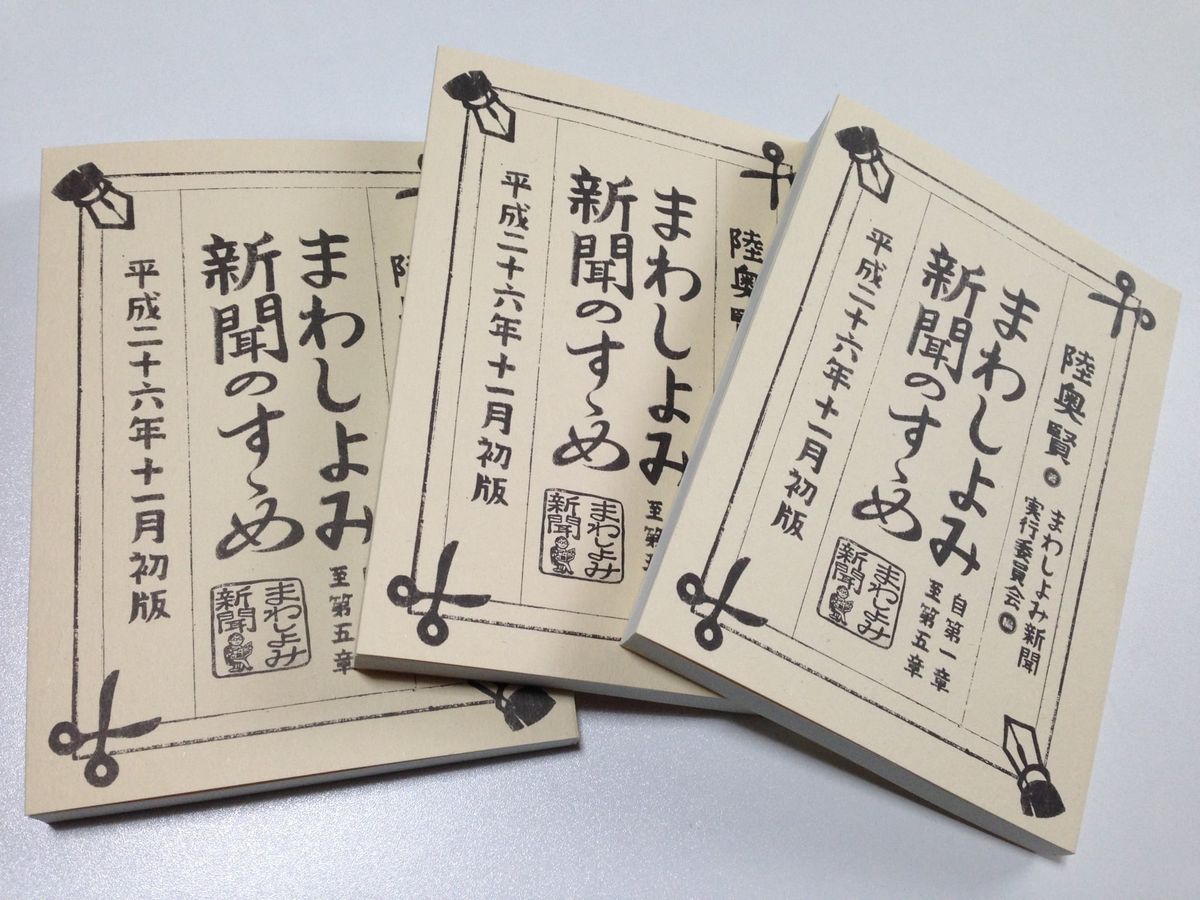 まわしよみ
新聞のすゝめ
至第五章
まわしよみ
新聞
平成二十六年十一月初版
陸奥
まわしよみ
新聞のすゝめ
至第
まわしよみ
新聞
平成二十六年十一月初版
陸奥賢 著
まわしよみ新聞
実行委員会 編
まわしよみ
新聞のすゝめ
自第一章
至第五章
まわしよみ
新聞
平成二十六年十一月初版